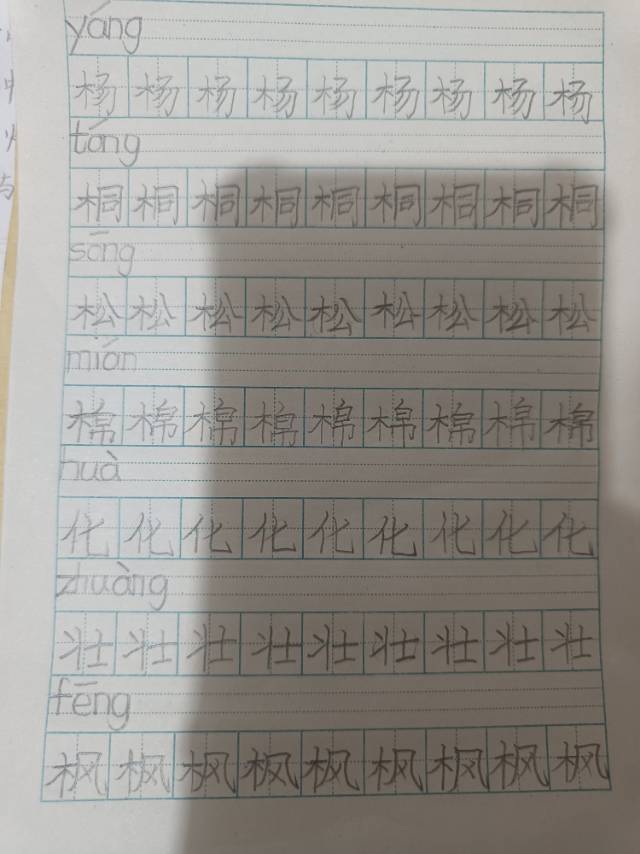 yáng
杨 杨 杨 杨 杨 杨 杨 杨 杨
tóng
桐 桐 桐 桐 桐 桐 桐 桐 桐
sōng
松 松 松 松 松 松 松 松 松
mián
棉 棉 棉 棉 棉 棉 棉 棉 棉
huà
化 化 化 化 化 化 化 化 化
zhuàng
壮 壮 壮 壮 壮 壮 壮 壮 壮
fēng
枫 枫 枫 枫 枫 枫 枫 枫 枫